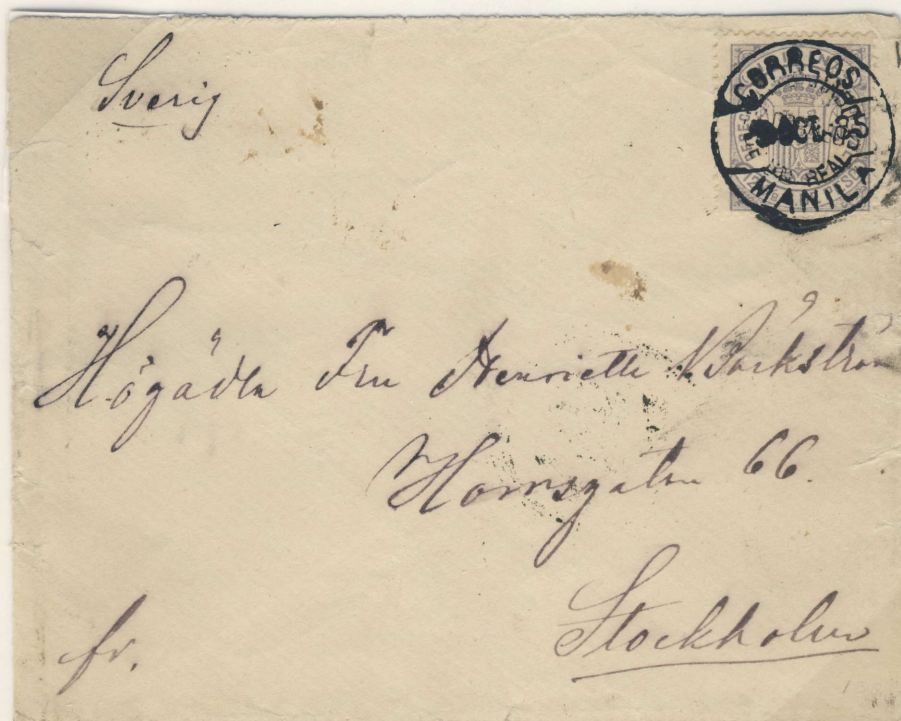 Sverig
CORREOS
MANILA
Högädla Fru Henriette Bäckström
Hornsgatan 66.
Stockholm
fr.